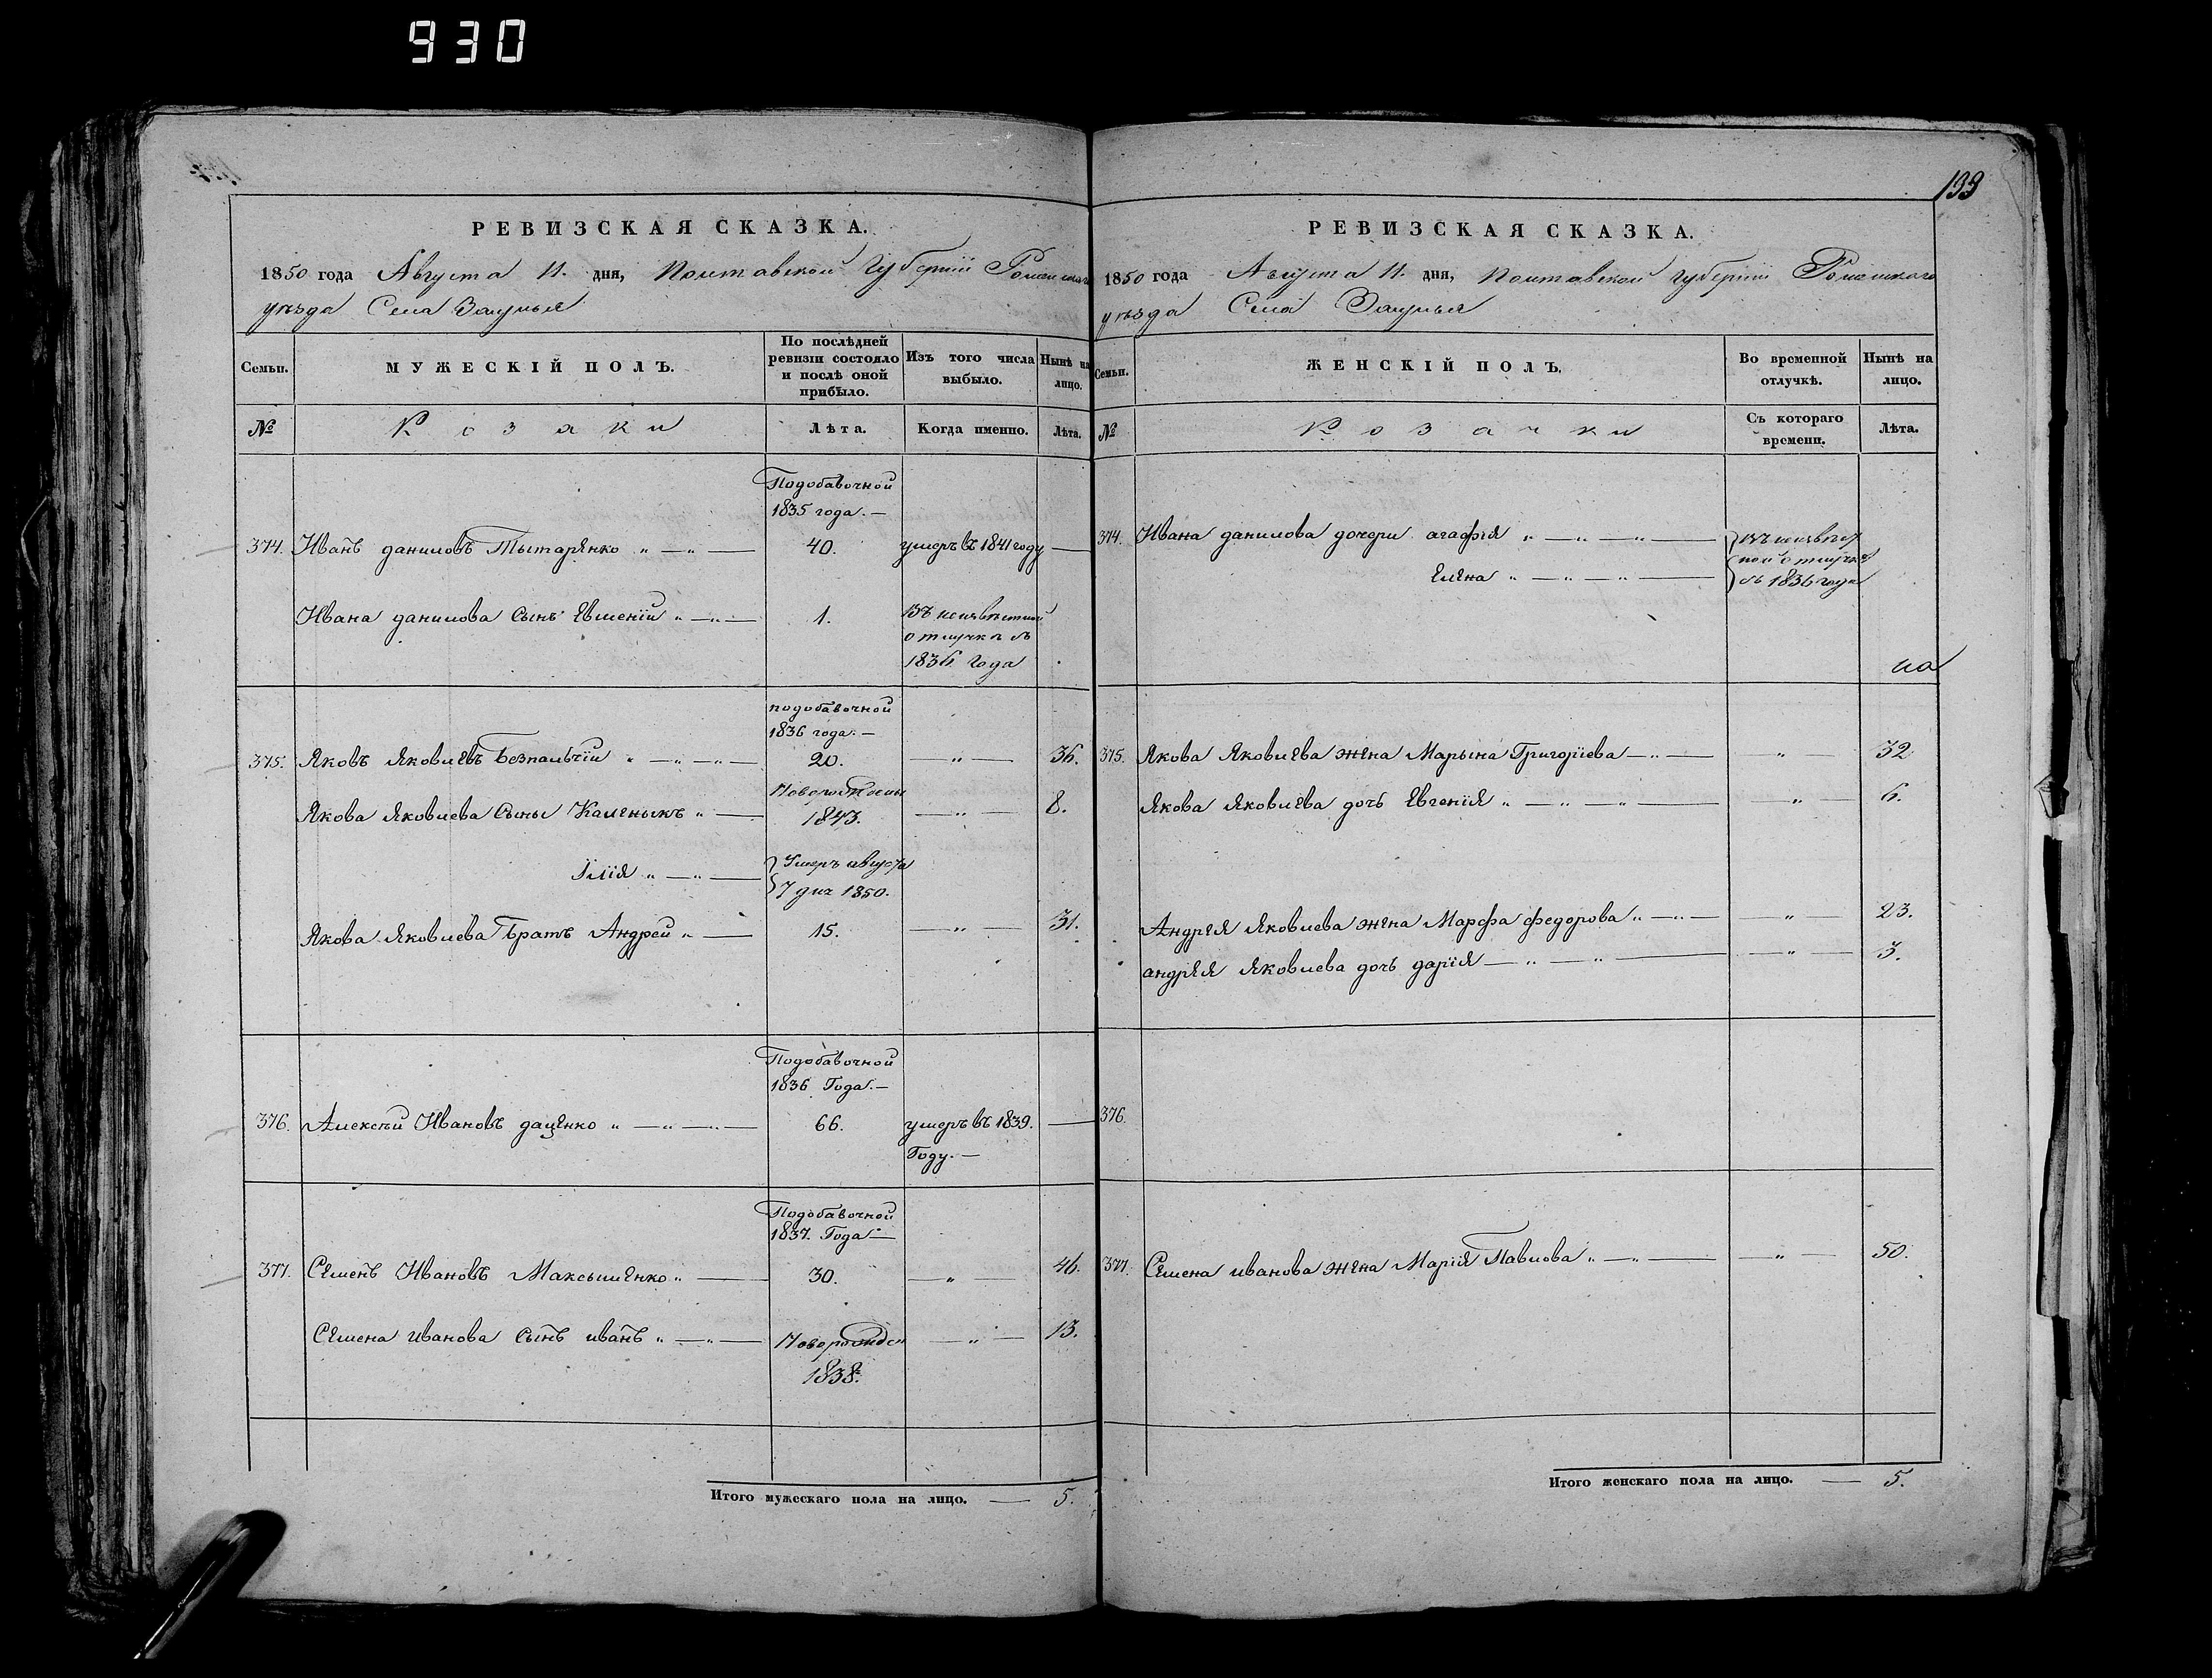 930
РЕВИЗСКАЯ СКАЗКА.
1850 года Августа 11. дня, Полтавской Губернии Роменскаго
уѣзда Села Заруцья
Семьи.
МУЖЕСКІЙ ПОЛЪ.
По послѣдней ревизіи состояло и послѣ оной прибыло.
Изъ того числа выбыло.
Нынѣ на лицо.
№
Козаки
Лѣта.
Когда именно.
Лѣта.
Подобавочной
1835 года. —
374. Иванъ даниловъ Тытарѣнко „ — „ — 40. умеръ въ 1841 году —
Ивана данилова Сынъ Евменій „ — „ — 1. Въ неизвѣстной
отлучкѣ съ
1836 года
подобавочной
1836 года. —
375. Яковъ Яковлевъ Безпальчій „ — „ — „ — 20. — „ — 36.
Якова Яковлева Сыны Каленыкъ „ — 1843. — „ — 8.
Ілія „ — „ — Умеръ августа
7 дня 1850.
Якова Яковлева Братъ Андрей „ — 15. — „ — 31.
Подобавочной
1836 Года. —
376. Алексѣй Ивановъ даценко „ — „ — „ — 66. умеръ въ 1839. —
Году. —
Подобавочной
1837. Года —
377. Семенъ Ивановъ Максыменко „ — 30. — „ — 46.
Семена иванова Сынъ иванъ „ — „ — Новорожден — „ — 13.
1838.
Итого мужескаго пола на лицо. — 5.
133
РЕВИЗСКАЯ СКАЗКА.
1850 года Августа 11. дня, Полтавской Губернии Роменскаго
уѣзда Села Заруцья
Семьи.
ЖЕНСКІЙ ПОЛЪ.
Во временной отлучкѣ.
Нынѣ на лицо.
№
Козачки
Съ котораго времени.
Лѣта.
374. Ивана данилова дочери агафія „ — „ — „ — въ неизвѣст
ной отлучкѣ
Елена „ — „ — „ — съ 1836 года
375. Якова Яковлева жена Марына Григоріева — „ — „ 32
Якова Яковлева дочь Евгенія „ — „ — „ — „ — 6.
Андрея Яковлева жена Марфа федорова „ — „ — — „ — 23.
андрея Яковлева дочь дарія — „ — „ — — „ — 3.
376.
377. Семена иванова жена Марія Павлова „ — „ — — „ — 50.
Итого женскаго пола на лицо. — 5.